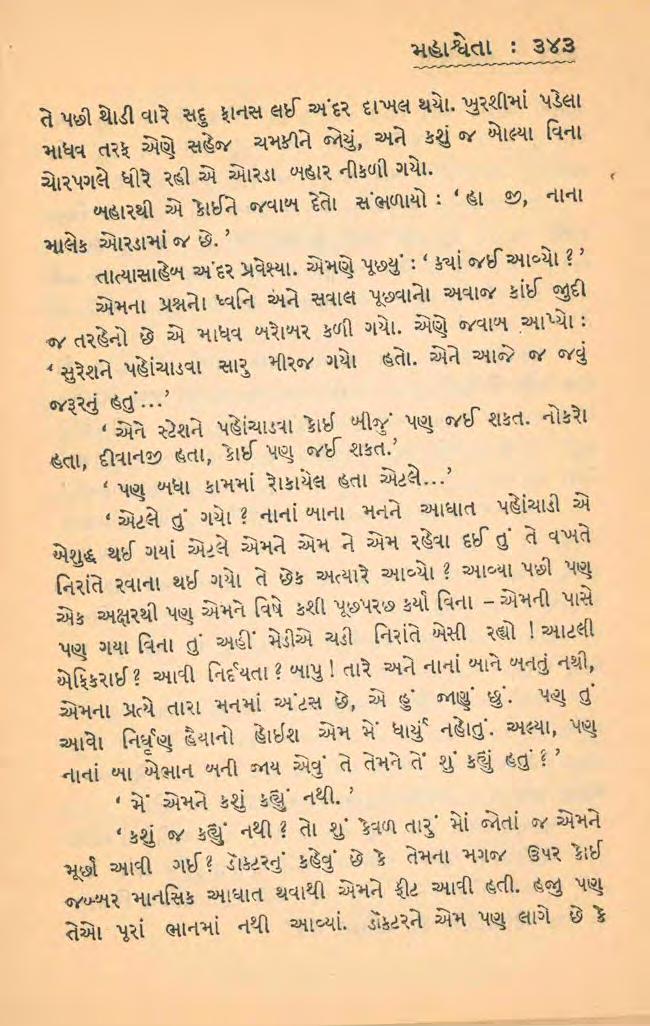 મહાશ્વેતા : ૩૪૩
તે પછી થોડી વારે સદુ ફાનસ લઈ અંદર દાખલ થયો. ખુરશીમાં પડેલા
માધવ તરફ એણે સહેજ ચમકીને જોયું, અને કશું જ બોલ્યા વિના
ચોરપગલે ધીરે રહી એ ઓરડા બહાર નીકળી ગયો.
બહારથી એ કોઈને જવાબ દેતો સંભળાયો : ‘ હા જી, નાના
માલેક ઓરડામાં જ છે. ’
તાત્યાસાહેબ અંદર પ્રવેશ્યા. એમણે પૂછ્યું : ‘ ક્યાં જઈ આવ્યો ? ’
એમના પ્રશ્નનો ધ્વનિ અને સવાલ પૂછવાનો અવાજ કાંઈ જુદી
જ તરહેનો છે એ માધવ બરોબર કળી ગયો. એણે જવાબ આપ્યો :
‘ સુરેશને પહોંચાડવા સારુ મીરજ ગયો હતો. એને આજે જ જવું
જરૂરનું હતું...’
‘ એને સ્ટેશને પહોંચાડવા કોઈ બીજું પણ જઈ શકત. નોકરો
હતા, દીવાનજી હતા, કોઈ પણ જઈ શકત.’
‘ પણ બધા કામમાં રોકાયેલ હતા એટલે...’
‘ એટલે તું ગયો ? નાનાં બાના મનને આઘાત પહોંચાડી એ
બેશુદ્ધ થઈ ગયાં એટલે એમને એમ ને એમ રહેવા દઈ તું તે વખતે
નિરાંતે રવાના થઈ ગયો તે છેક અત્યારે આવ્યો ? આવ્યા પછી પણ
એક અક્ષરથી પણ એમને વિષે કશી પૂછપરછ કર્યા વિના – એમની પાસે
પણ ગયા વિના તું અહીં મેડીએ ચડી નિરાંતે બેસી રહ્યો ! આટલી
બેફિકરાઈ ? આવી નિર્દયતા ? બાપુ ! તારે અને નાનાં બાને બનતું નથી,
એમના પ્રત્યે તારા મનમાં અંટસ છે, એ હું જાણું છું. પણ તું
આવો નિર્ઘૃણ હૈયાનો હોઈશ એમ મેં ધાર્યું નહોતું. અલ્યા, પણ
નાનાં બા બેભાન બની જાય એવું તે તેમને તેં શું કહ્યું હતું ? ’
‘ મેં એમને કશું કહ્યું નથી. ’
‘ કશું જ કહ્યું નથી ? તો શું કેવળ તારું મોં જોતાં જ એમને
મૂર્છા આવી ગઈ ? ડૉક્ટરનું કહેવું છે કે તેમના મગજ ઉપર કોઈ
જબ્બર માનસિક આઘાત થવાથી એમને ફીટ આવી હતી. હજુ પણ
તેઓ પૂરાં ભાનમાં નથી આવ્યાં. ડૉક્ટરને એમ પણ લાગે છે કે